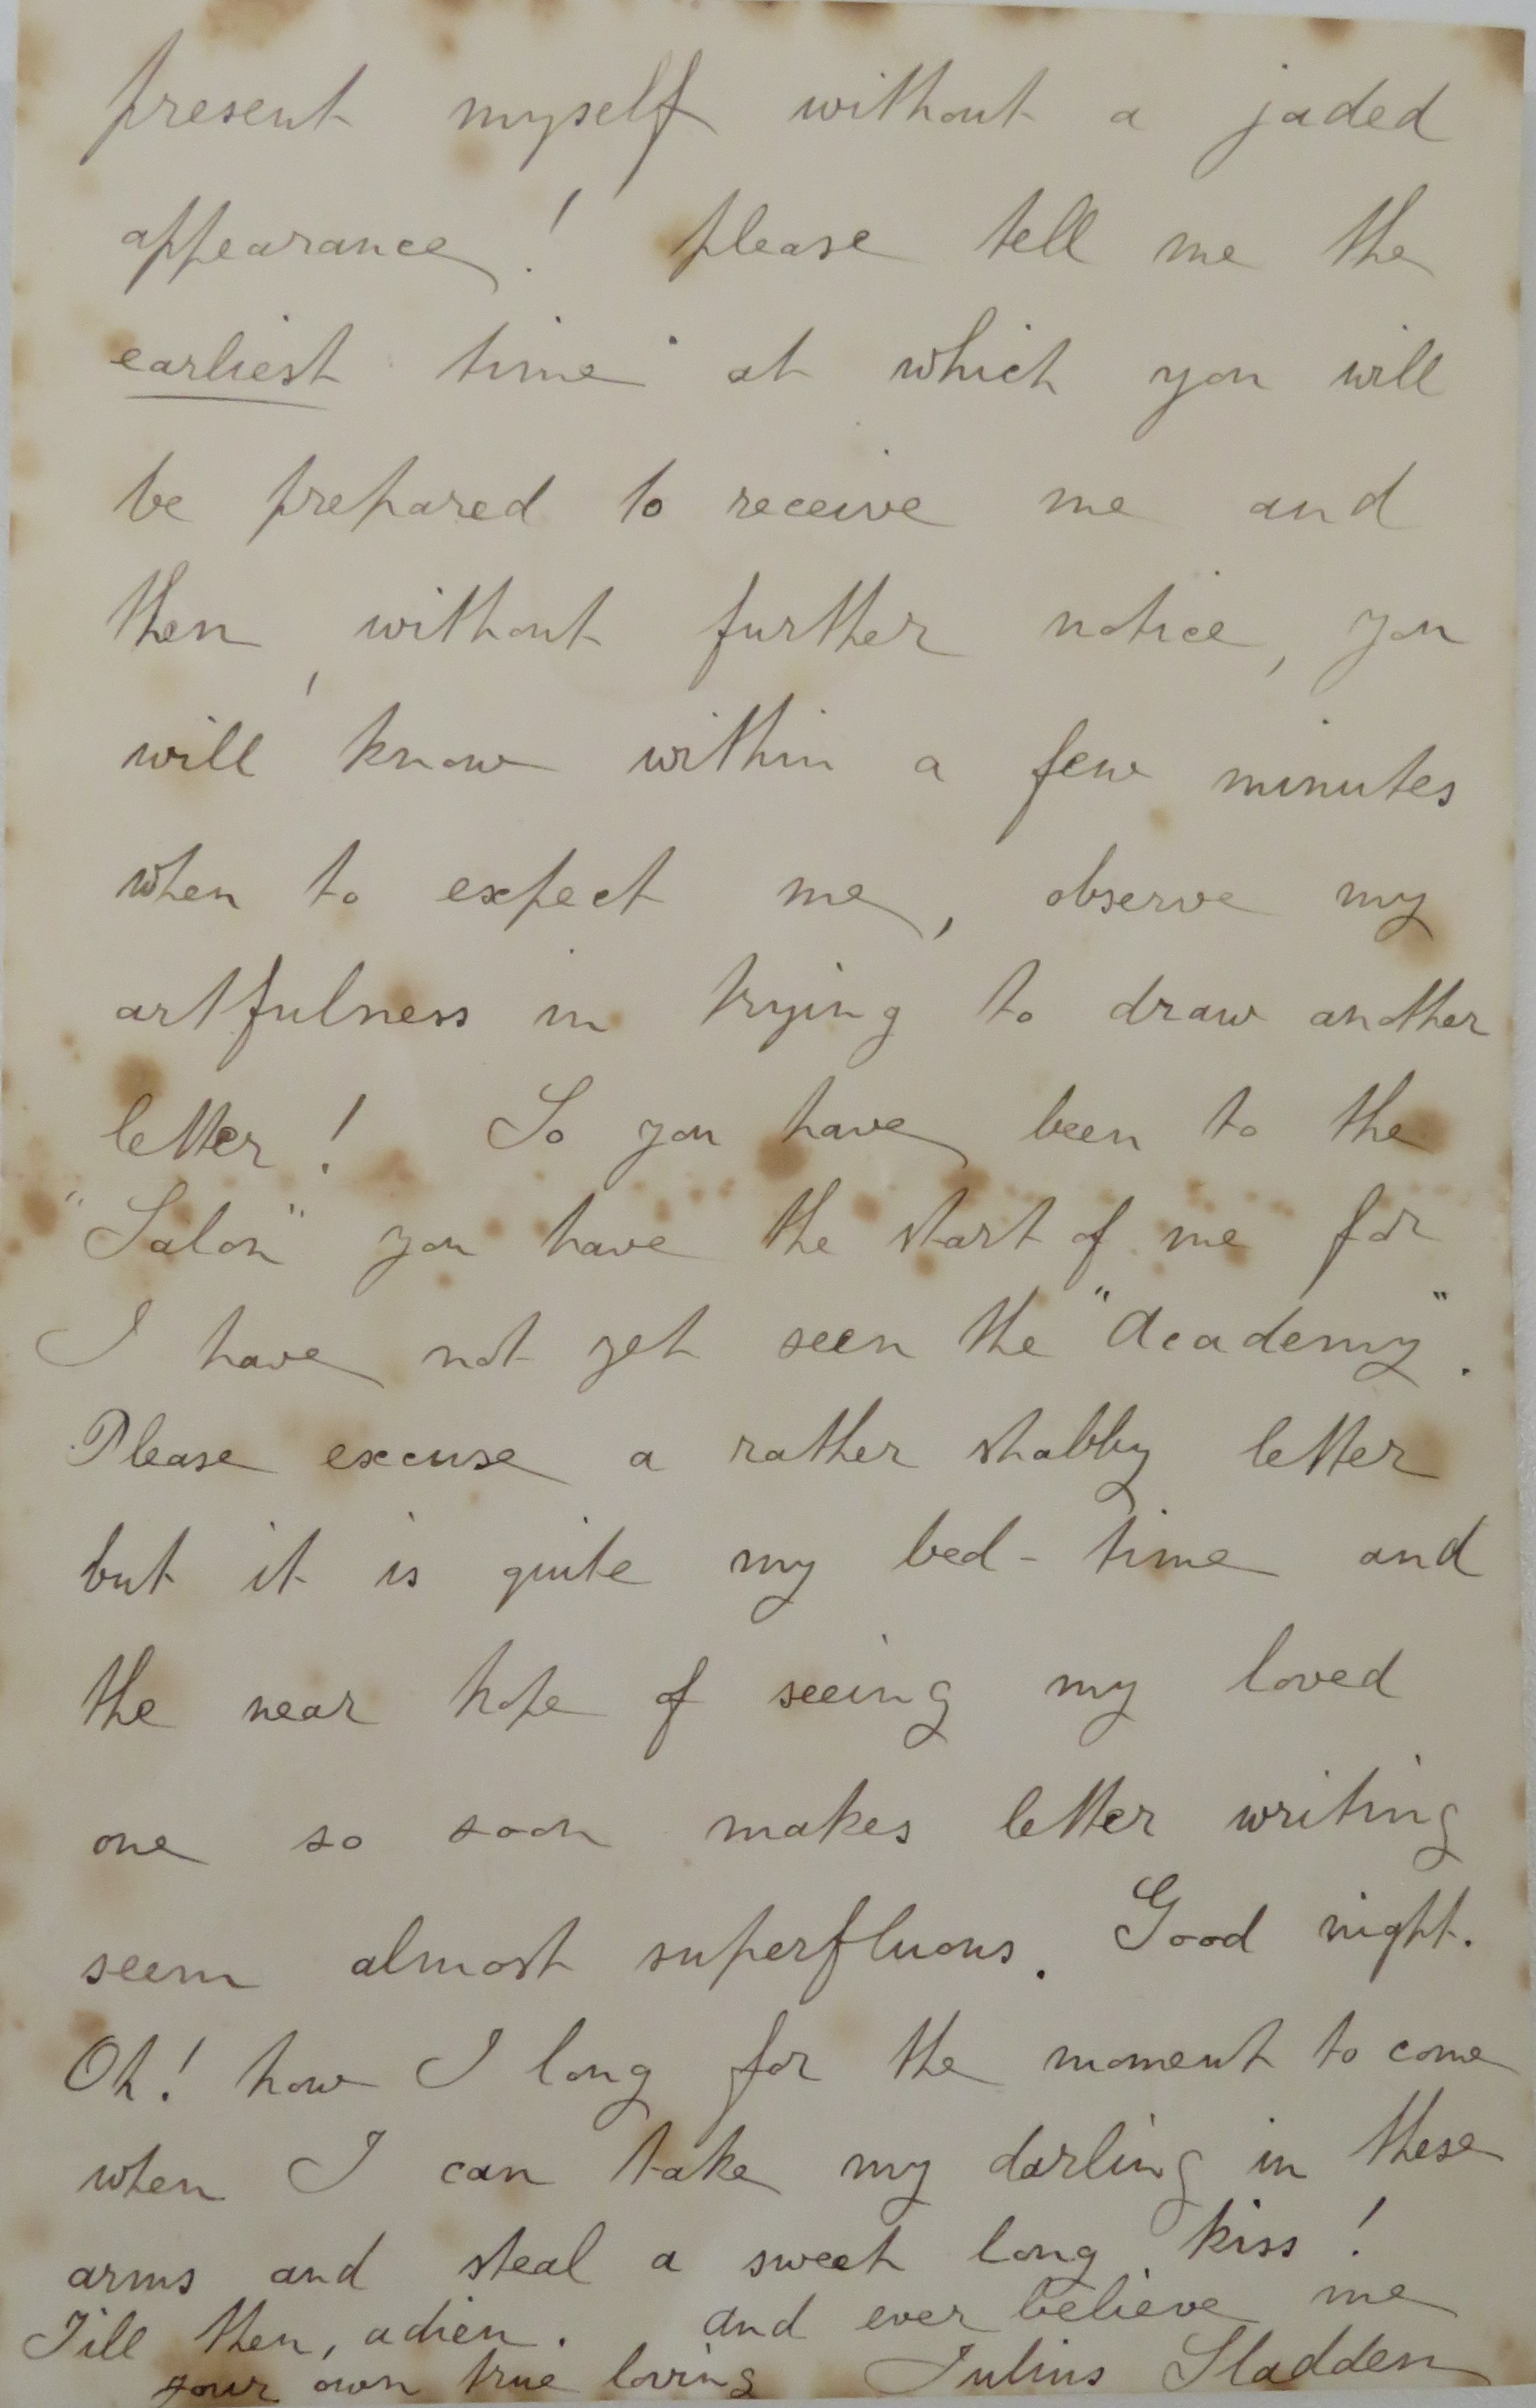 present myself without a jaded
appearance! please tell me the
earliest time at which you will
be prepared to receive me and
then, without further notice, you
will know within a few minutes
when to expect me, observe my
artfulness in trying to draw another
letter! So you have been to the
"Salon" you have the start of me for
I have not yet seen the "Academy".
Please excuse a rather shabby letter
but it is quite my bed-time and
the near hope of seeing my loved
one so soon makes letter writing
seem almost superfluous. Good night.
Oh! how I long for the moment to come
when I can take my darling in these
arms and steal a sweet long kiss!
Till then, adieu. and ever believe me
your own true loving Julius Sladden